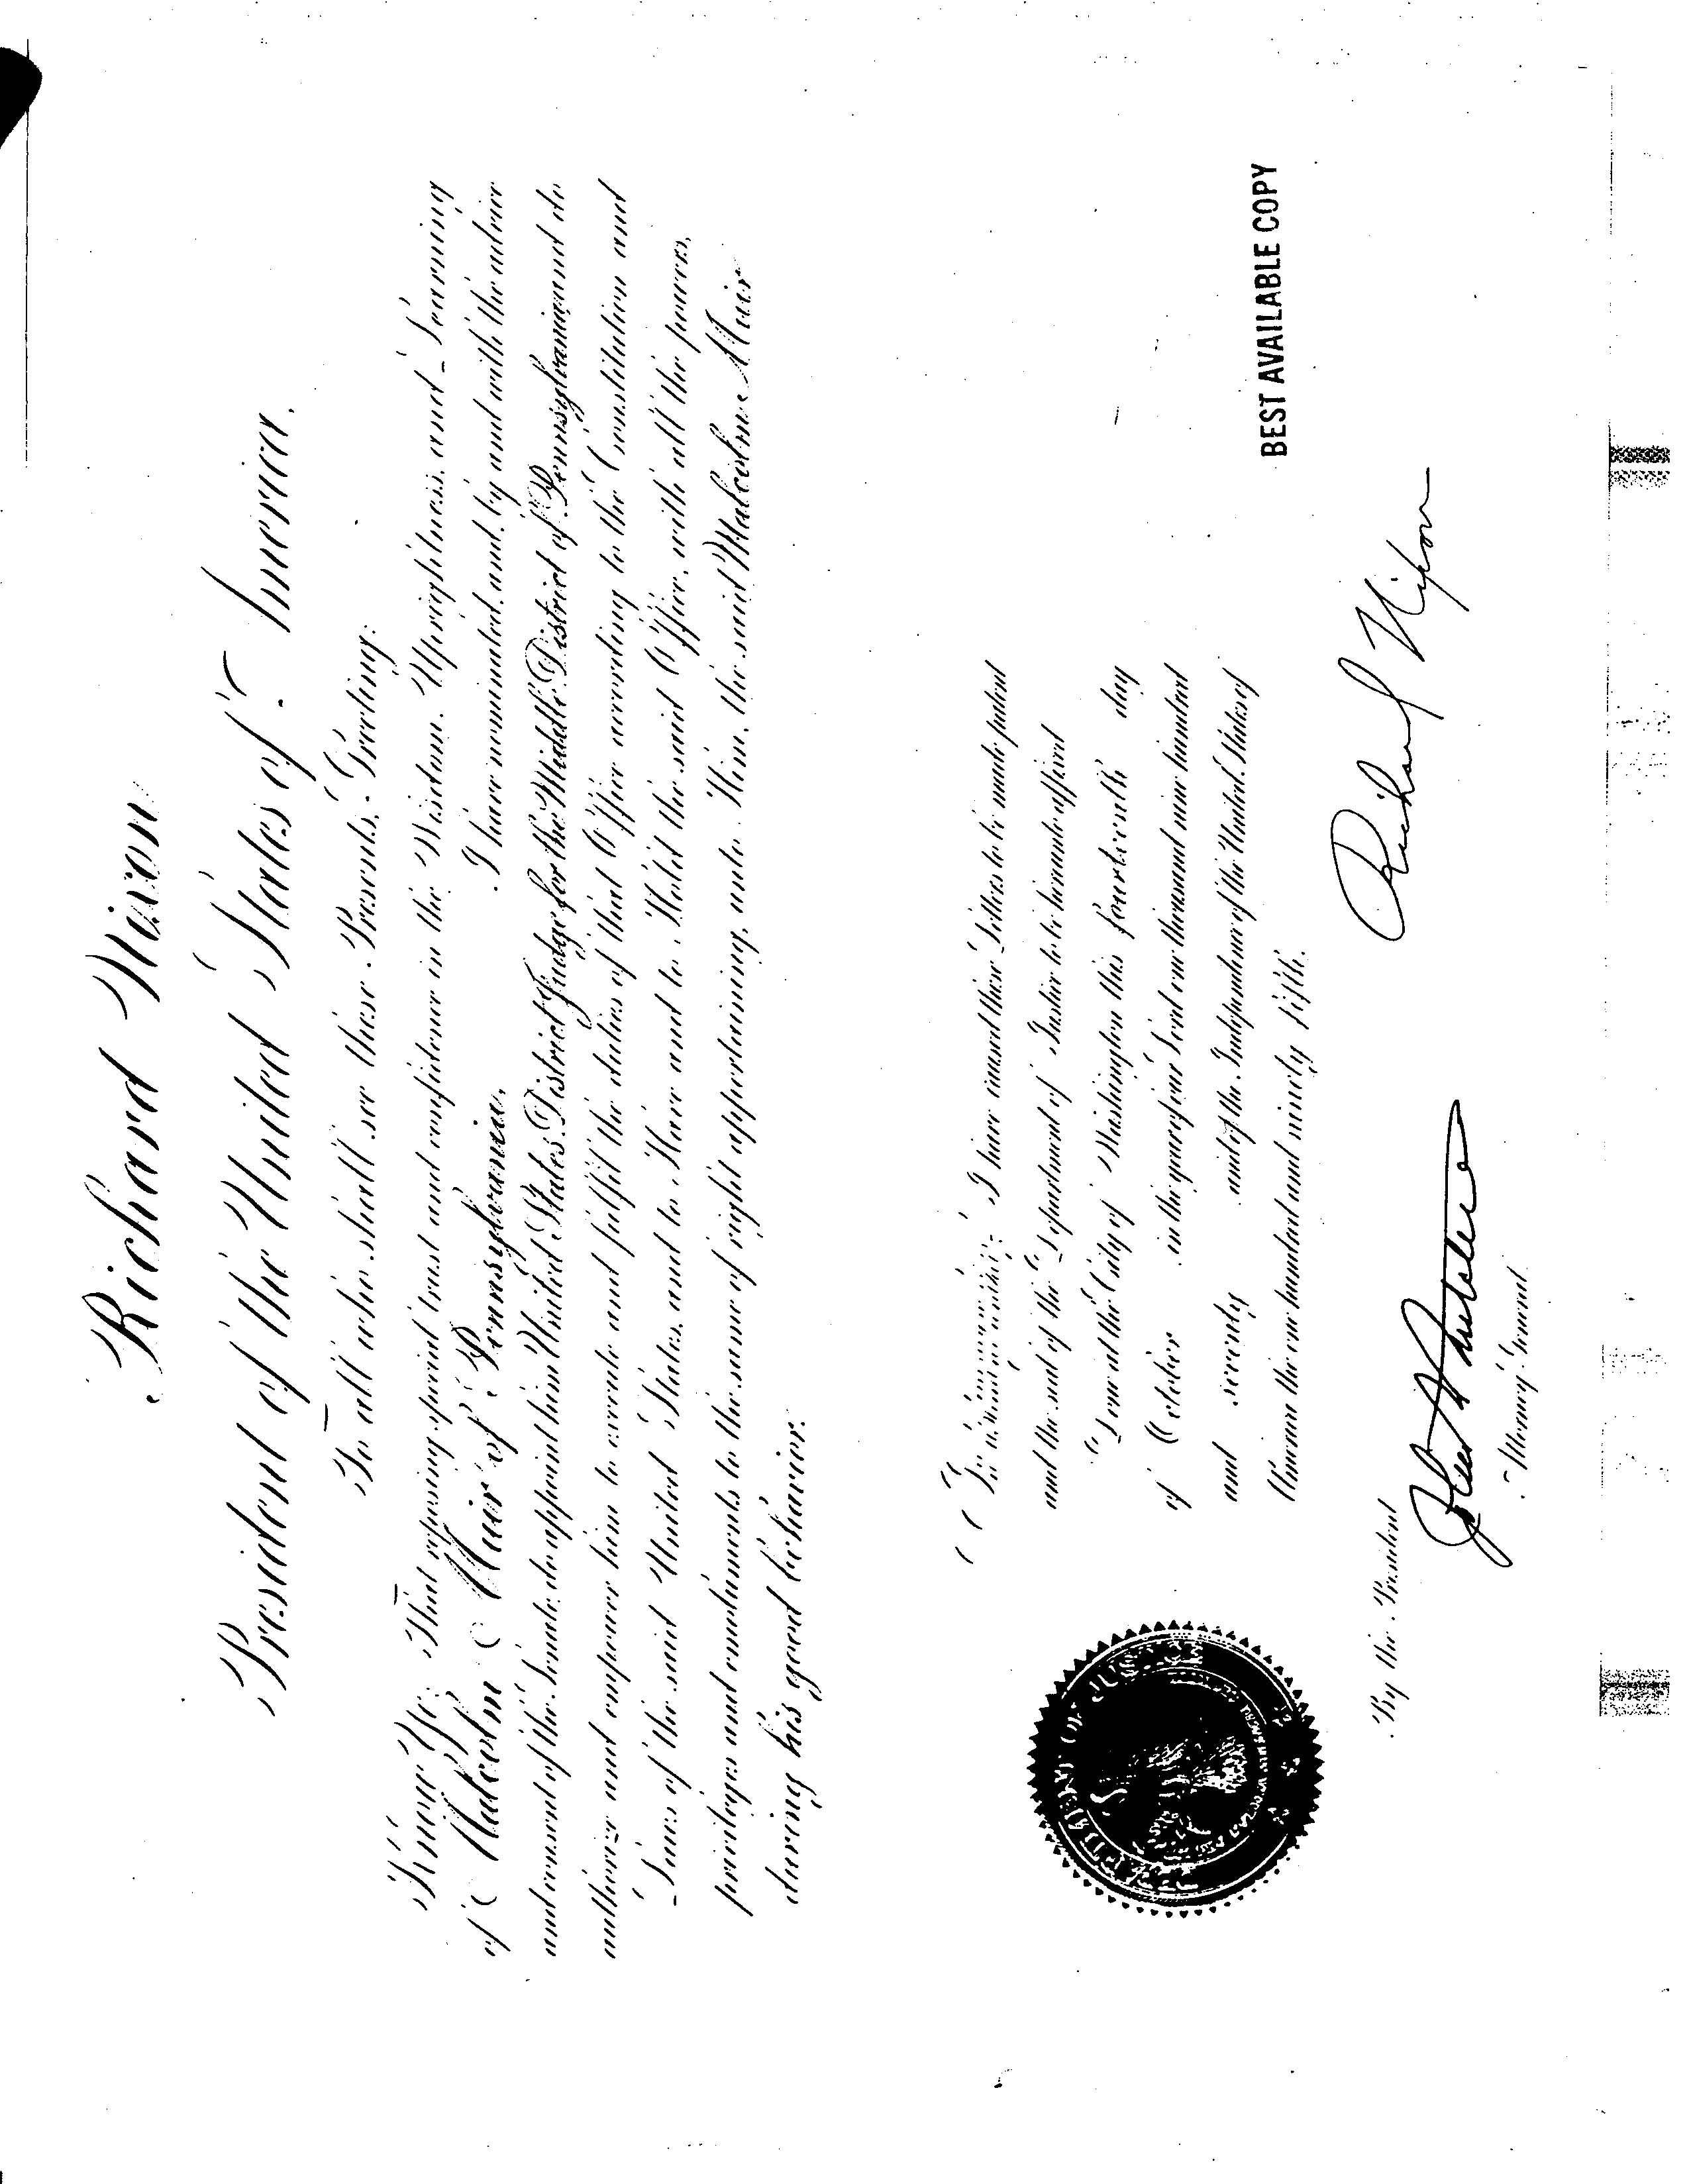 Richard Nixon
President of the United States of America.
To all who shall see these Presents, Greeting:
Know Ye; That reposing special trust and confidence in the Wisdom, Uprightness, and Learning
of Malcolm Muir of Pennsylvania, I have nominated, and, by and with the advice
and consent of the Senate, do appoint him United States District Judge for the Middle District of Pennsylvania and do
authorize and empower him to execute and fulfil the duties of that Office according to the Constitution and
Laws of the said United States, and to Have and to Hold the said Office, with all the powers,
privileges and emoluments to the same of right appertaining, unto Him, the said Malcolm Muir
during his good behavior.
In testimony whereof, I have caused these Letters to be made patent
and the seal of the Department of Justice to be hereunto affixed
Done at the City of Washington this fourteenth day
of October in the year of our Lord one thousand nine hundred
and seventy and of the Independence of the United States of
America the one hundred and ninety fifth.
BEST AVAILABLE COPY
DEPARTMENT OF JUSTICE
Richard Nixon
By the President
Attorney General